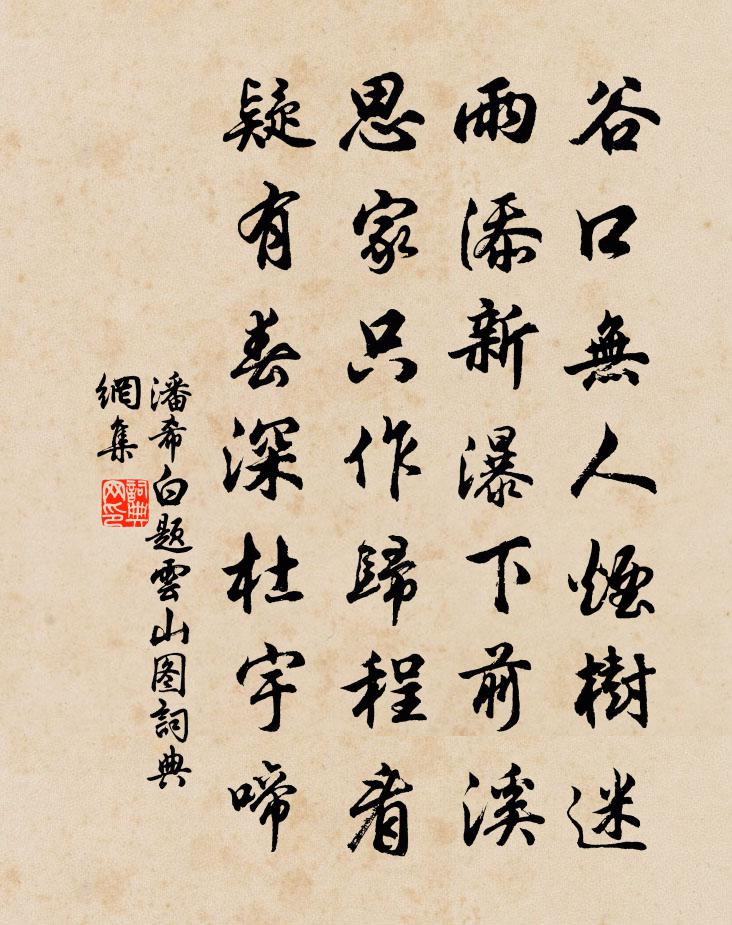 谷口無人煙樹迷
雨添新瀑下前溪
思家只作歸程看
疑有春深杜宇啼
潘希白題雲山图詞典
網集
詞典
网印